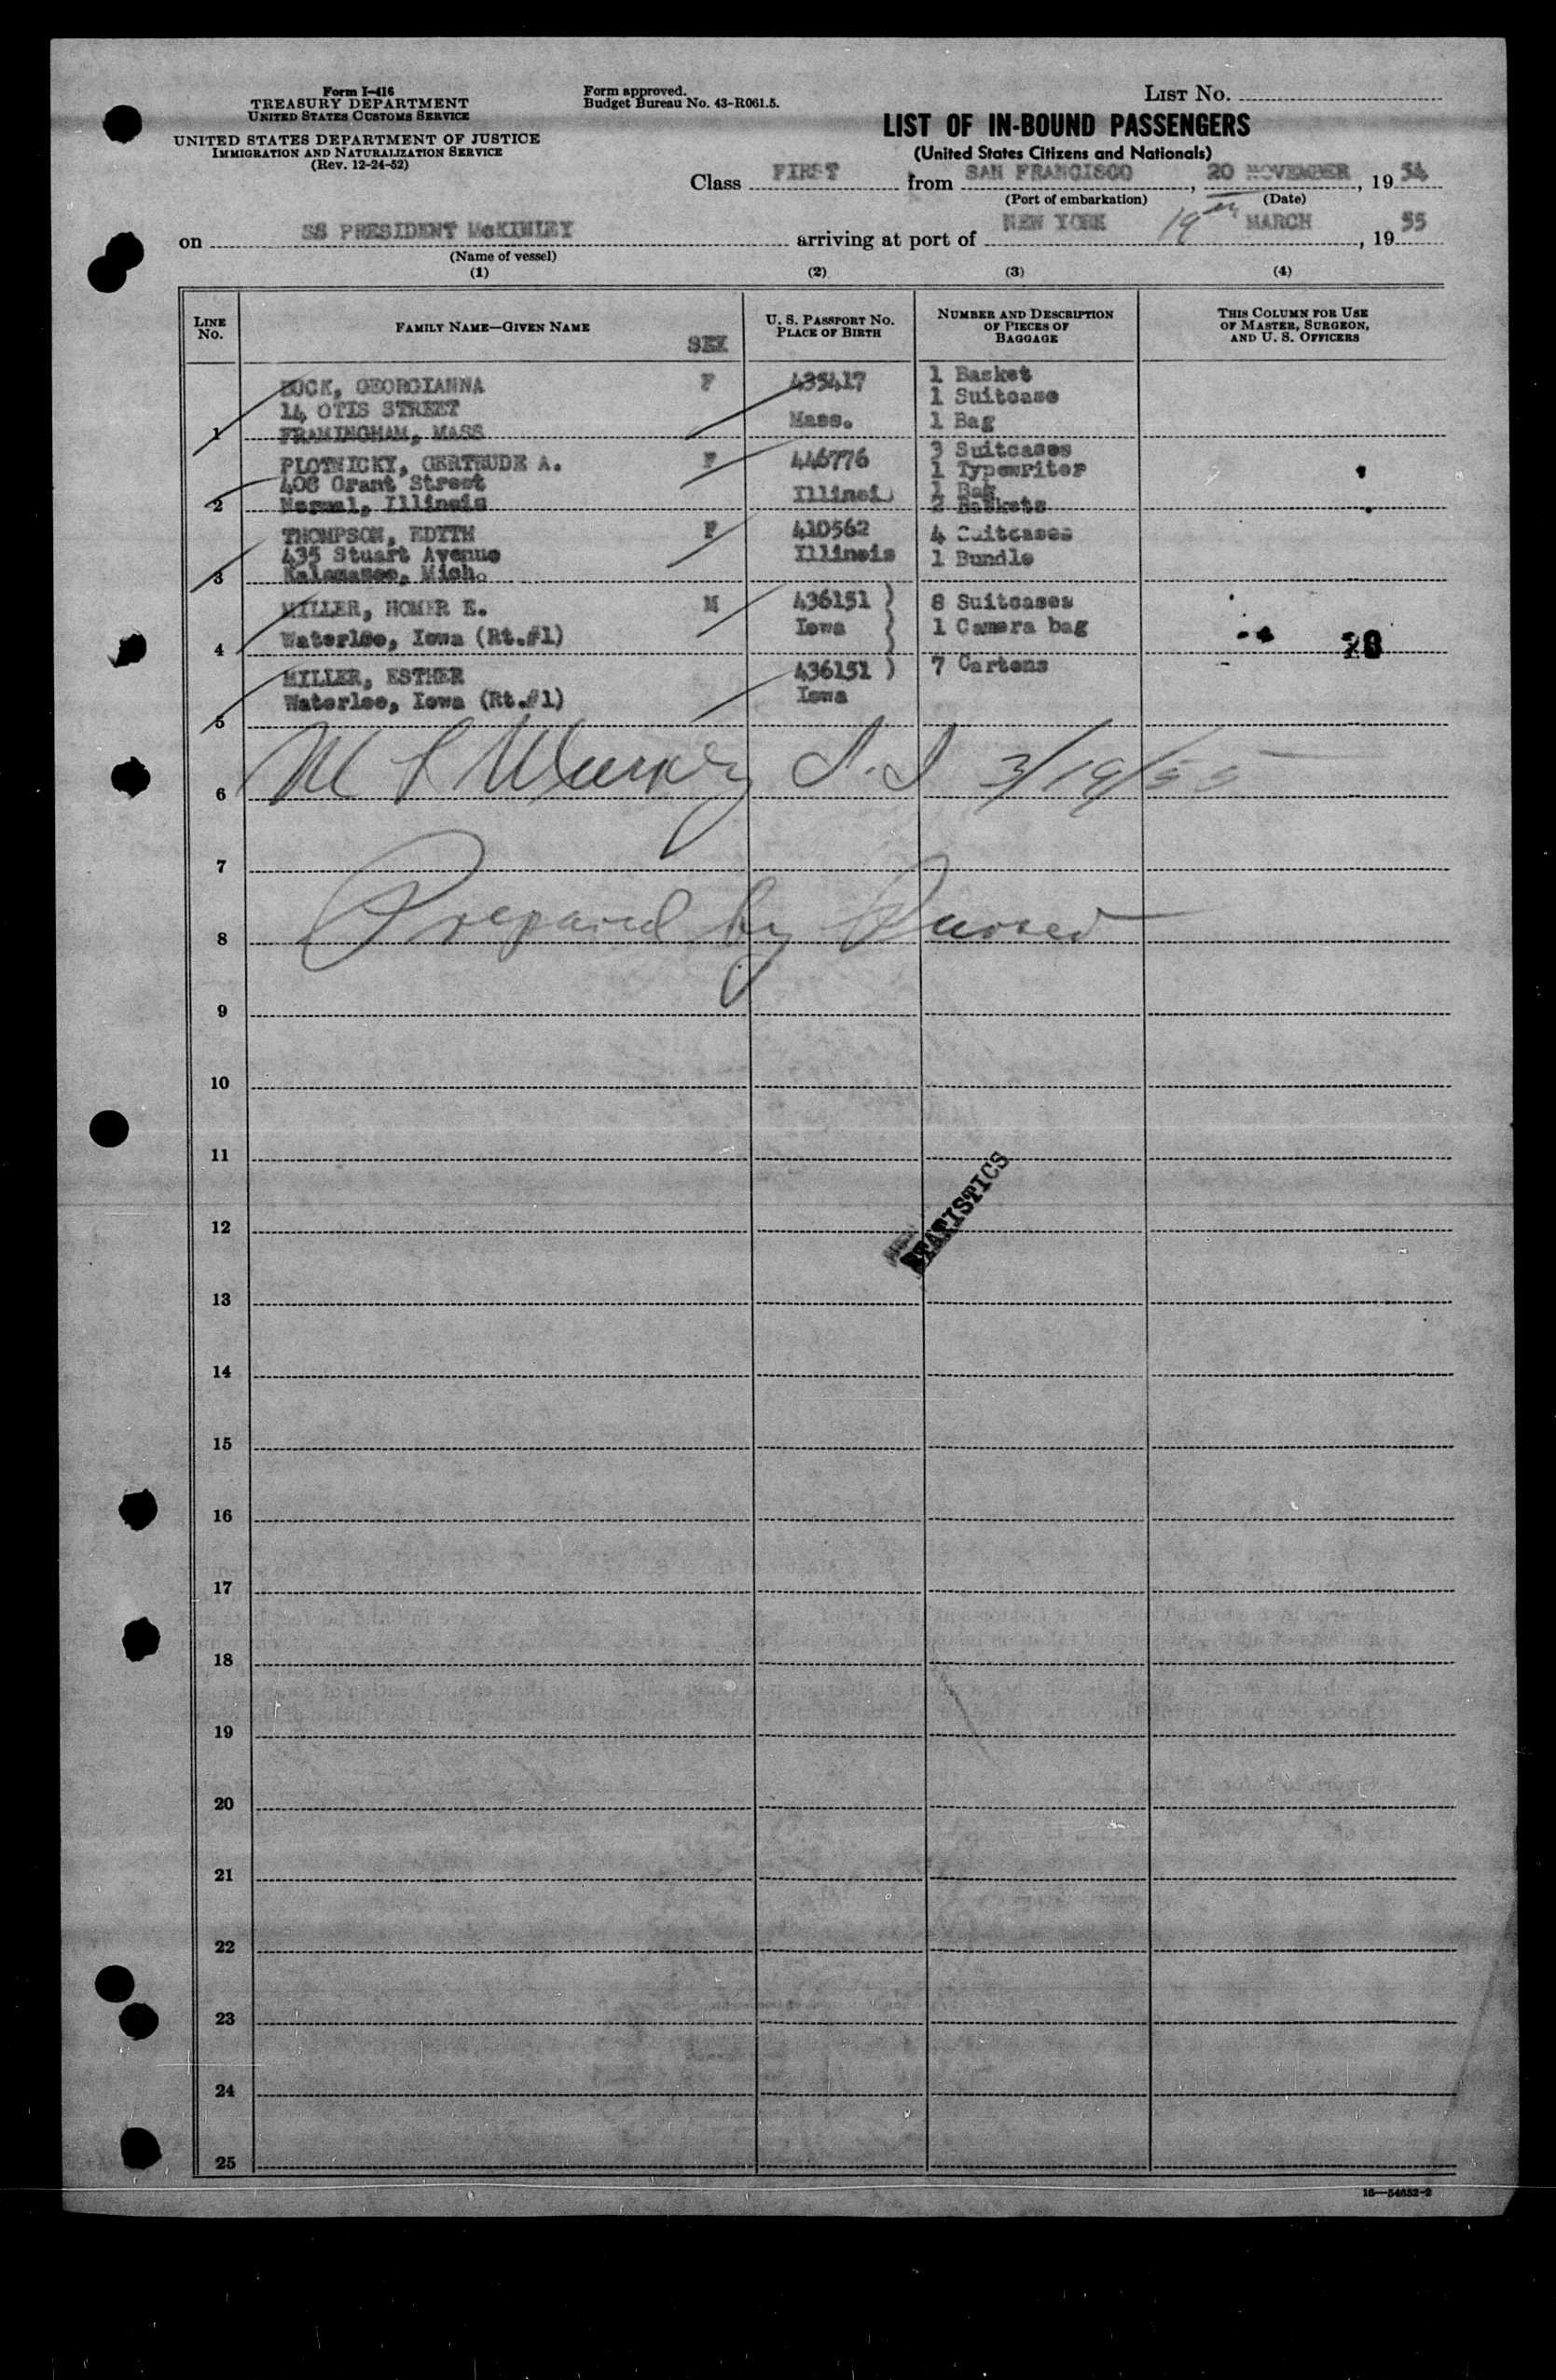 Form I-416
TREASURY DEPARTMENT
UNITED STATES CUSTOMS SERVICE
UNITED STATES DEPARTMENT OF JUSTICE
IMMIGRATION AND NATURALIZATION SERVICE
(Rev. 12-24-52)
Form approved.
Budget Bureau No. 43-R061.5.
LIST NO.
LIST OF IN-BOUND PASSENGERS
(United States Citizens and Nationals)
Class FIRST from SAN FRANCISCO, 20 NOVEMBER, 19 54
(Port of embarkation) (Date)
on SS PRESIDENT McKINLEY arriving at port of NEW YORK 19th MARCH, 19 55
(Name of vessel)
(1) (2) (3) (4)
LINE NO. FAMILY NAME—GIVEN NAME SEX U. S. PASSPORT NO. PLACE OF BIRTH NUMBER AND DESCRIPTION OF PIECES OF BAGGAGE THIS COLUMN FOR USE OF MASTER, SURGEON, AND U. S. OFFICERS
BOCK, GEORGIANNA F 435417 1 Basket
14 OTIS STREET 1 Suitcase
1 FRAMINGHAM, MASS Mass. 1 Bag
PLOTNICKY, GERTRUDE A. F 446776 3 Suitcases
408 Grant Street 1 Typewriter
2 Normal, Illinois Illinois 1 Bag
2 Baskets
THOMPSON, EDYTH F 410562 4 Suitcases
435 Stuart Avenue Illinois 1 Bundle
3 Kalamazoo, Mich.
MILLER, HOMER E. M 436151 ) 8 Suitcases
4 Waterloo, Iowa (Rt.#1) Iowa 1 Camera bag
MILLER, ESTHER 436151 ) 7 Cartons
Waterloo, Iowa (Rt.#1) Iowa
5
6 M L I.I 3/19/55
7
Prepared by Purser
8
9
10
11
STATISTICS
12
13
14
15
16
17
18
19
20
21
22
23
24
25
16—54652-2